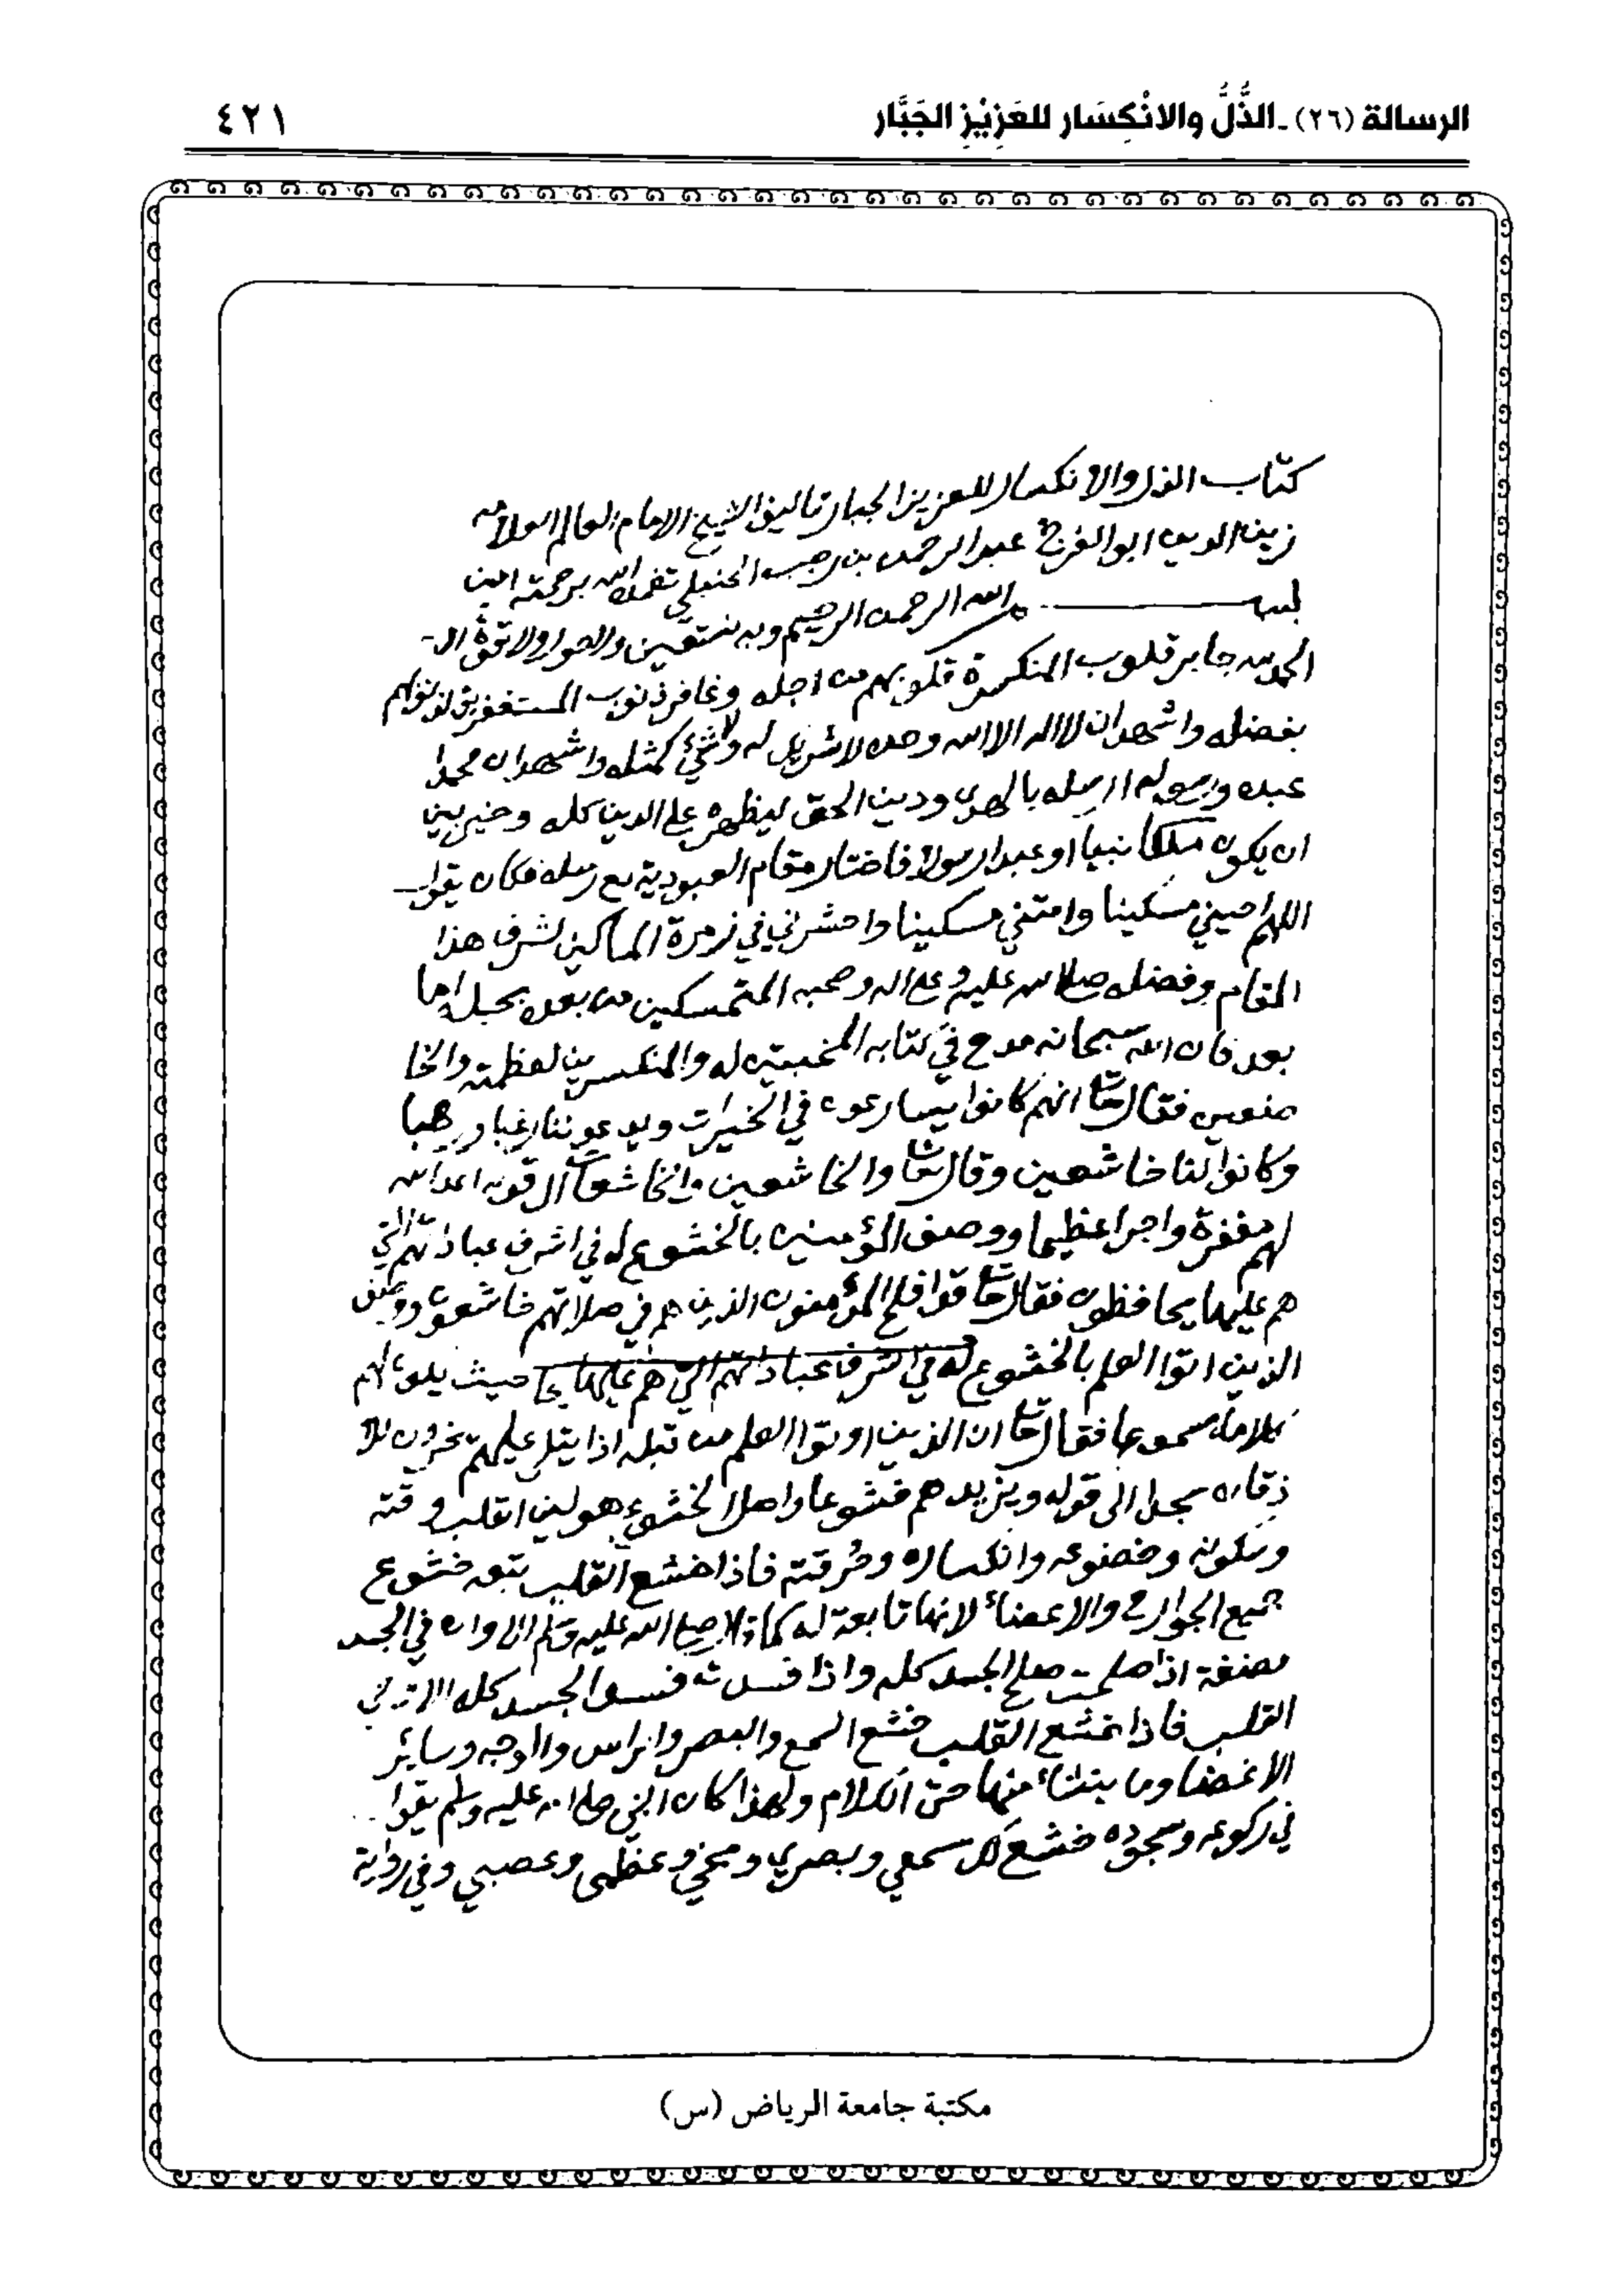 الرسالة (٢٦) ـ الذُّلُّ والانْكِسَار للعَزِيْزِ الجَبَّار
٤٢١
كتاب الذل والانكسار للعزيز الجبار تاليف الشيخ الامام العالم العلامه
زين الدين ابو الفرج عبد الرحمن بن رجب الحنبلي تغمده الله برحمته امين
بسم الله الرحمن الرحيم وبه نستعين ولا حول ولا قوة الا
الحمد لله جابر قلوب المنكسرة قلوبهم من اجله وغافر ذنوب المستغفرين لذنوبهم
بفضله واشهد ان لا اله الا الله وحده لا شريك له ولا شيئ كمثله واشهد ان محمدا
عبده ورسوله ارسله بالهدى ودين الحق ليظهره على الدين كله وخير بين
ان يكون ملكا نبيا او عبدا رسولا فاختار مقام العبودية مع رسله فكان يقول
اللهم احيني مسكينا وامتني مسكينا واحشرني في زمرة المساكين لشرف هذا
المقام وفضله صلى الله عليه وعلى اله وصحبه المتمسكين من بعده بحبله اما
بعد فان الله سبحانه مدح في كتابه المخبتين له والمنكسرين لعظمته والخا
ضعين فقال تعا انهم كانوا يسارعون في الخيرات ويدعوننا رغبا ورهبا
وكانوا لنا خاشعين وقال تعا والخاشعين والخاشعات الى قوله اعد الله
لهم مغفرة واجرا عظيما ووصف المؤمنين بالخشوع له في اشرف عباداتهم التي
هم عليها يحافظون فقال تعا قد افلح المؤمنون الذين هم في صلاتهم خاشعون ووصف
الذين اتوا العلم بالخشوع له في اشرف عباداتهم التي هم عليها يحا حيث يكون لهم
كلامه مسموعا فقال تعا ان الذين اوتوا العلم من قبله اذا يتلى عليهم يخرون للا
ذقان سجدا الى قوله ويزيدهم خشوعا واصل الخشوع هو لين القلب ورقته
وسكونه وخضوعه وانكساره وحرقته فاذا خشع القلب تبعه خشوع
جميع الجوارح والاعضاء لانها تابعة له كما قال صلى الله عليه وسلم الا وان في الجسد
مضغة اذا صلحت صلح الجسد كله واذا فسدت فسد الجسد كله الا وهي
القلب فاذا خشع القلب خشع السمع والبصر والراس والوجه وسائر
الاعضا وما ينشاء منها حتى الكلام ولهذا كان النبي صلى الله عليه وسلم يقول
في ركوعه وسجوده خشع لك سمعي وبصري ومخي وعظمى وعصبي وفي رواية
مكتبة جامعة الرياض (س)